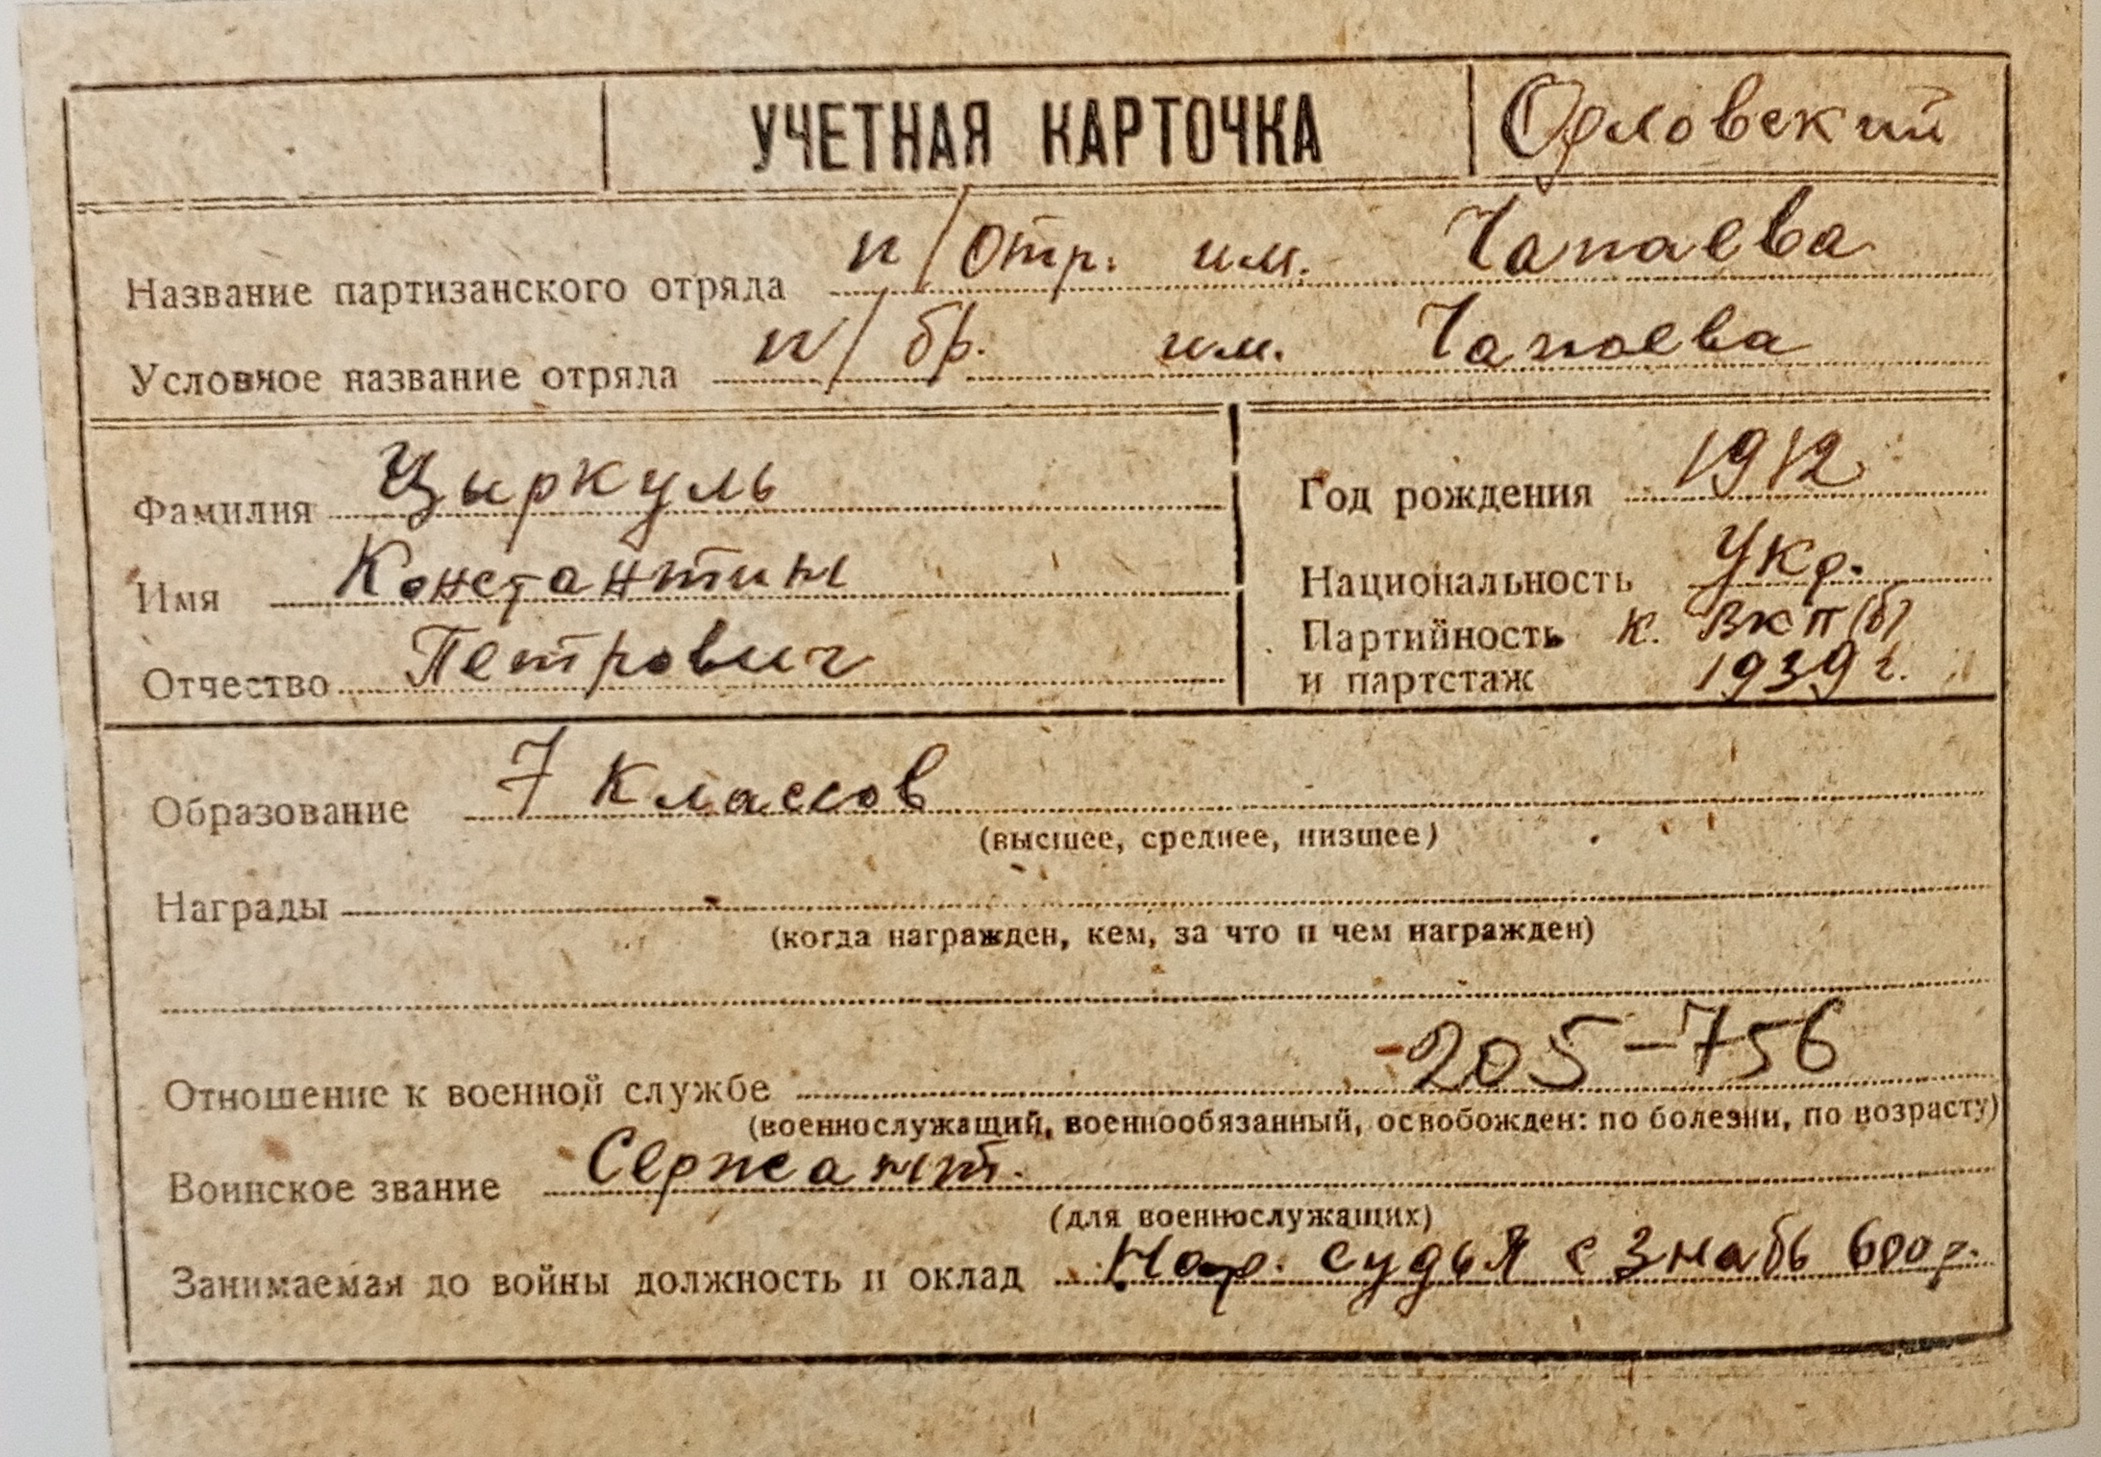 УЧЕТНАЯ КАРТОЧКА Орловский
Название партизанского отряда п/отр. им. Чапаева
Условное название отряда п/бр. им. Чапаева
Фамилия Цыркуль
Имя Константин
Отчество Петрович
Год рождения 1912
Национальность Укр.
Партийность к. ВКП(б)
и партстаж 1939 г.
Образование 7 классов
(высшее, среднее, низшее)
Награды
(когда награжден, кем, за что и чем награжден)
205-756
Отношение к военной службе
(военнослужащий, военнообязанный, освобожден: по болезни, по возрасту)
Воинское звание Сержант.
(для военнослужащих)
Занимаемая до войны должность и оклад Нар. судья 600 р.